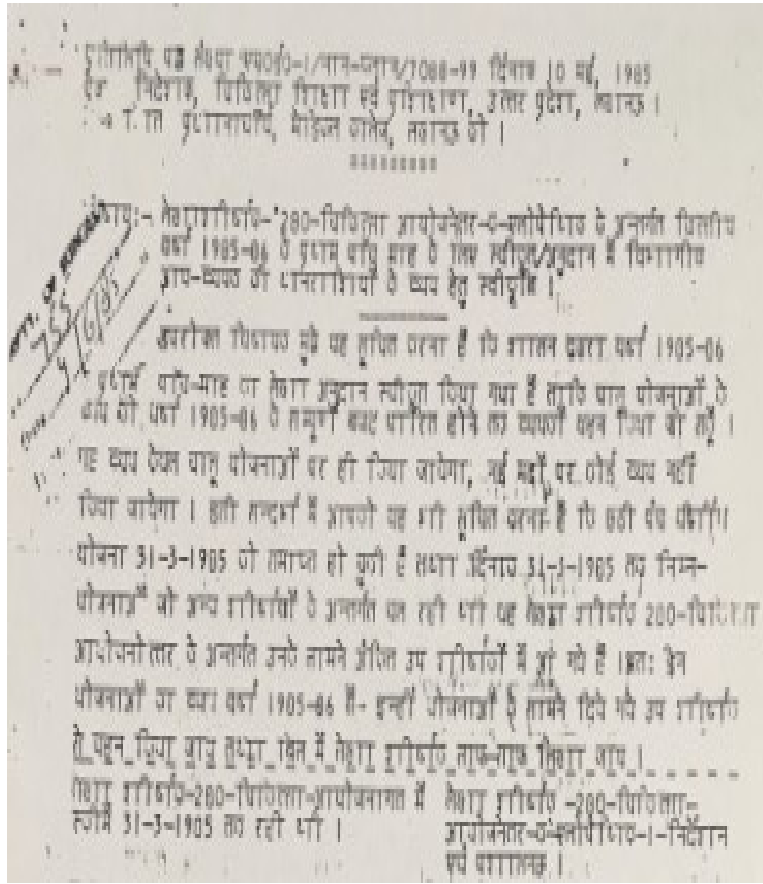 प्रतिलिपि पत्र संख्या एम0ई0-1/मान-चुनाव/7088-99 दिनांक 10 मई, 1985
निदेशक, चिकित्सा शिक्षा एवं प्रशिक्षण, उत्तर प्रदेश, लखनऊ ।
प्रधानाचार्य, मेडिकल कालेज, लखनऊ को ।
=========
विषय:- लेखाशीर्षक-"280-चिकित्सा आयोजनेत्तर-क-एलोपैथिक के अन्तर्गत वित्तीय
वर्ष 1985-86 के प्रथम पांच माह के लिए स्वीकृत/अनुदान में विभागीय
आय-व्ययक की धनराशियों के व्यय हेतु स्वीकृति ।
DEPTT. OF SURGICAL
755
5/6/85
उपरोक्त विषयक मुझे यह सूचित करना है कि शासन द्वारा वर्ष 1985-86
प्रथम पांच-माह का लेखा अनुदान स्वीकृत किया गया है ताकि चालू योजनाओं के
व्यय को वर्ष 1985-86 के सम्पूर्ण बजट पारित होने तक व्ययकों वहन किया जा सके ।
यह व्यय केवल चालू योजनाओं पर ही किया जायेगा, नई मदों पर कोई व्यय नहीं
किया जायेगा । इसी सन्दर्भ में आपको यह भी सूचित करना है कि छठी पंच वर्षीय
योजना 31-3-1985 को समाप्त हो चुकी है तथा दिनांक 31-3-1985 तक निम्न-
योजनाओं जो अन्य शीर्षकों के अन्तर्गत चल रही थी वह लेखा शीर्षक 280-चिकित्सा
आयोजनेत्तर के अन्तर्गत उनके सामने अंकित उप शीर्षकों में आ गये हैं ।अतः इन
योजनाओं का व्यय वर्ष 1985-86 से- इन्हीं योजनाओं के सामने दिये गये उप शीर्षक
से वहन किया जाय तथा बिल में लेखा शीर्षक साफ-साफ लिखा जाय ।
लेखा शीर्षक-280-चिकित्सा-आयोजनागत में
स्कीमें 31-3-1985 तक रही थी ।
लेखा शीर्षक -280-चिकित्सा-
आयोजनेत्तर-क-एलोपैथिक-1-निर्देशन
एवं प्रशासनक ।